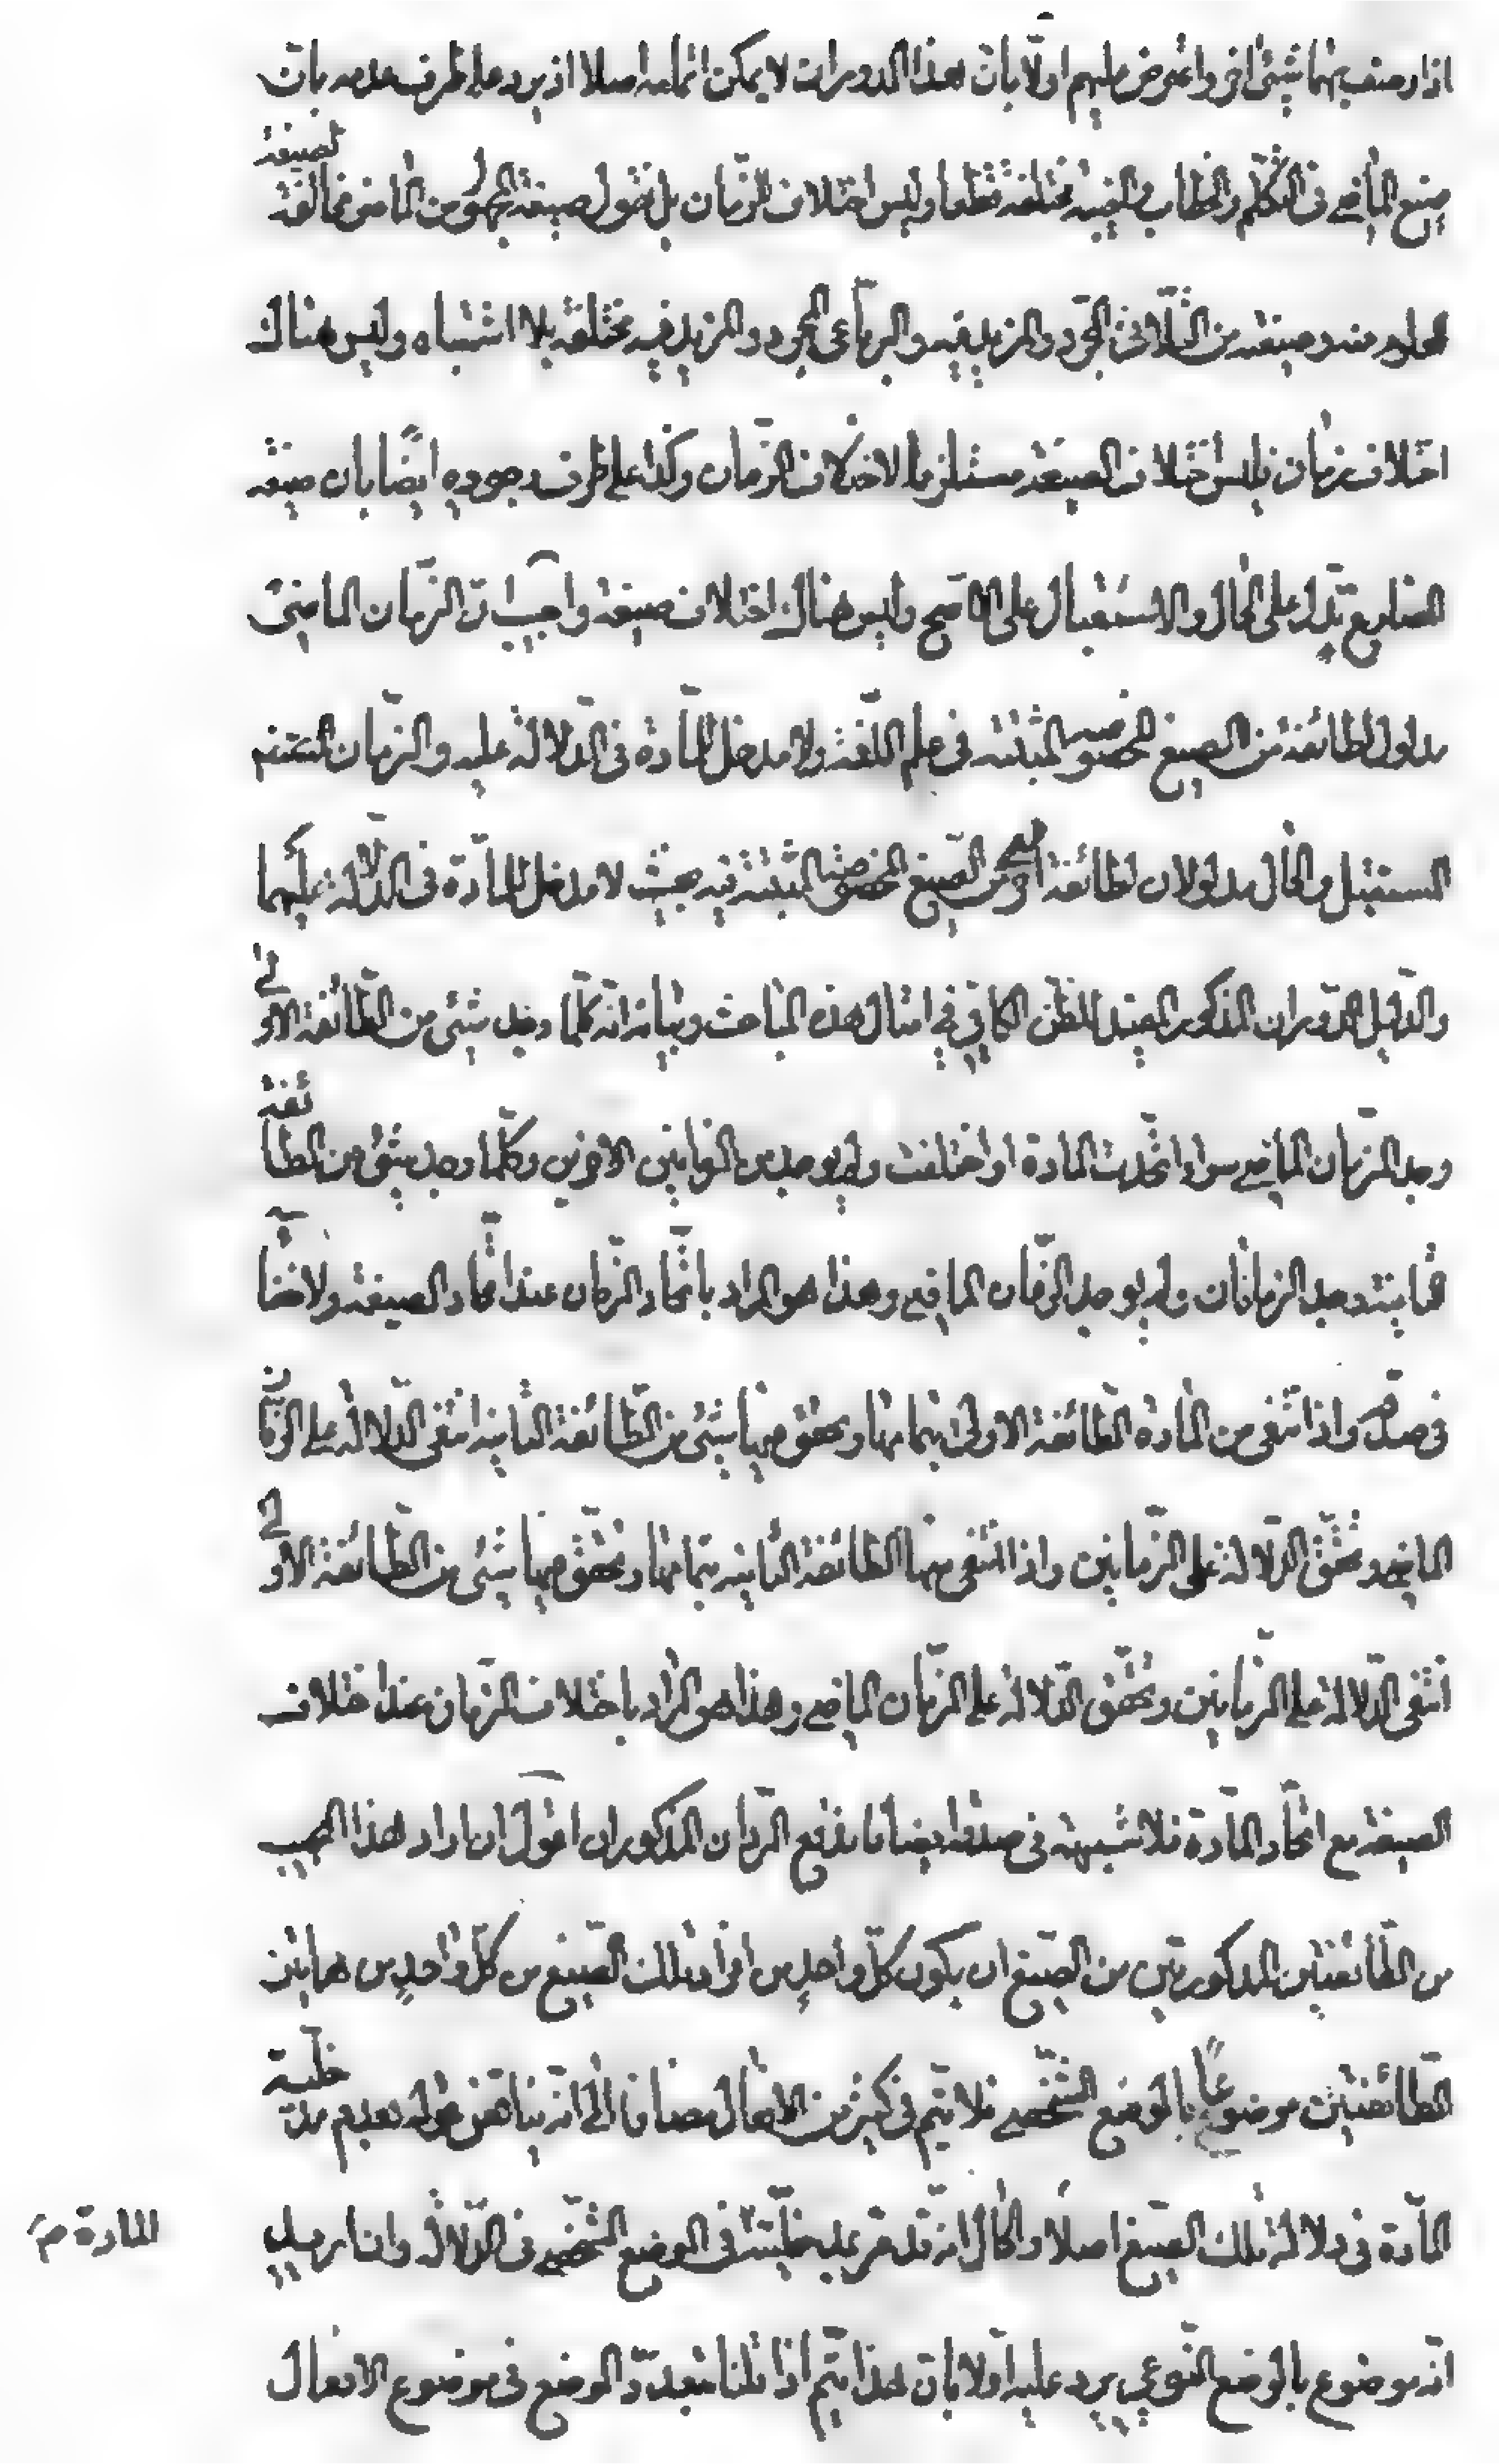 اذا رصنف منهما شيئ اخر واعترض عليهم اولا بان هذا الدوران لا يمكن اتمامه اصلا اذ يرد على طرف عدمه بان
صيغ الماضي في التكلم والخطاب والغيبة مختلفة قطعا وليس اختلاف الزمان بل نقول صيغة المجهول من الماضي مخالفة لصيغة
المعلوم منه وصيغته من الثلاثي المجرد والمزيد فيه والرباعي المجرد والمزيد فيه مختلفة بلا اشتباه وليس هناك
اختلاف زمان فليس اختلاف الصيغة مستلزما لاختلاف الزمان وكذا على طرف وجوده ايضا بان صيغة
المضارع تدل على الحال والاستقبال على الاصح وليس هناك اختلاف صيغة واجيب بان الزمان الماضي
مدلول لطائفة من الصيغ المخصوصة المثبتة في علم اللغة ولا مدخل للمادة في الدلالة عليه والزمان
المستقبل والحال مدلولان لطائفة اخرى من الصيغ المخصوصة المثبتة فيه بحيث لا مدخل للمادة في الدلالة عليهما
والدليل الدوران المذكور المفيد للظن الكافي في امثال هذه المباحث وبيانه انه كلما وجد شيئ من الطائفة الاولى
وجد الزمان الماضي سواء اتحدت المادة او اختلفت ولم يوجد من الزمانين الاخرين وكلما وجد شيئ من الطائفة
الثانية وجد الزمانان ولم يوجد الزمان الماضي وهذا هو المراد باتحاد الزمان عند اتحاد الصيغة ولا خفاء
في صدقه واذا انتفى من المادة الطائفة الاولى بتمامها وتحقق منها شيئ من الطائفة الثانية انتفى الدلالة على الزمان
الماضي وتحقق الدلالة على الزمانين واذا انتفى منها الطائفة الثانية بتمامها وتحقق منها شيئ من الطائفة الاولى
انتفى الدلالة على الزمانين وتحقق الدلالة على الزمان الماضي وهذا هو المراد باختلاف الزمان عند اختلاف
الصيغة مع اتحاد المادة فلا شبهة في صدقه ايضا فاندفع الردان المذكوران اقول ان اراد هذا المجيب
من الطائفتين المذكورتين من الصيغ ان يكون كل واحد من افراد تلك الصيغ من كل واحد من هاتين
الطائفتين موضوعا بالوضع الشخصي فلا يتم في كثير من الافعال مضافا الى انه يناقض قوله بعدم مدخلية
المادة في دلالة تلك الصيغ اصلا والحال انه قد مر عليه خلية في الوضع الشخصي في الدلالة وان اريد
المادة صح
انه موضوع بالوضع النوعي يرد عليه اولا بان هذا يتم اذا قلنا بتعدد الوضع في موضوع الافعال